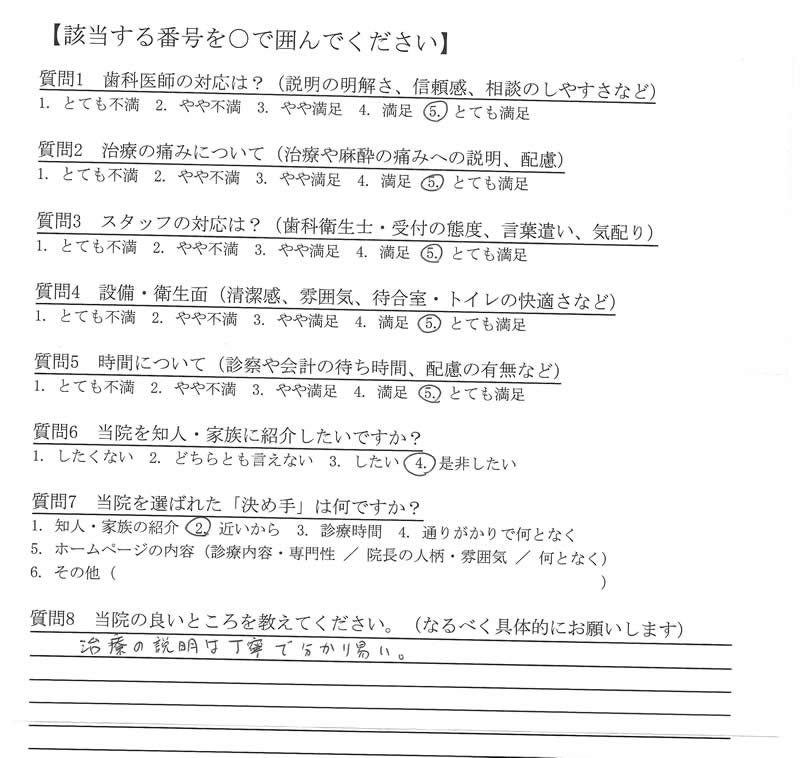 【該当する番号を〇で囲んでください】
質問1 歯科医師の対応は？（説明の明解さ、信頼感、相談のしやすさなど）
1. とても不満 2. やや不満 3. やや満足 4. 満足 5. とても満足
質問2 治療の痛みについて（治療や麻酔の痛みへの説明、配慮）
1. とても不満 2. やや不満 3. やや満足 4. 満足 5. とても満足
質問3 スタッフの対応は？（歯科衛生士・受付の態度、言葉遣い、気配り）
1. とても不満 2. やや不満 3. やや満足 4. 満足 5. とても満足
質問4 設備・衛生面（清潔感、雰囲気、待合室・トイレの快適さなど）
1. とても不満 2. やや不満 3. やや満足 4. 満足 5. とても満足
質問5 時間について（診察や会計の待ち時間、配慮の有無など）
1. とても不満 2. やや不満 3. やや満足 4. 満足 5. とても満足
質問6 当院を知人・家族に紹介したいですか？
1. したくない 2. どちらとも言えない 3. したい 4. 是非したい
質問7 当院を選ばれた「決め手」は何ですか？
1. 知人・家族の紹介 2. 近いから 3. 診療時間 4. 通りがかりで何となく
5. ホームページの内容（診療内容・専門性 ／ 院長の人柄・雰囲気 ／ 何となく）
6. その他（ ）
質問8 当院の良いところを教えてください。（なるべく具体的にお願いします）
治療の説明は丁寧で分かり易い。